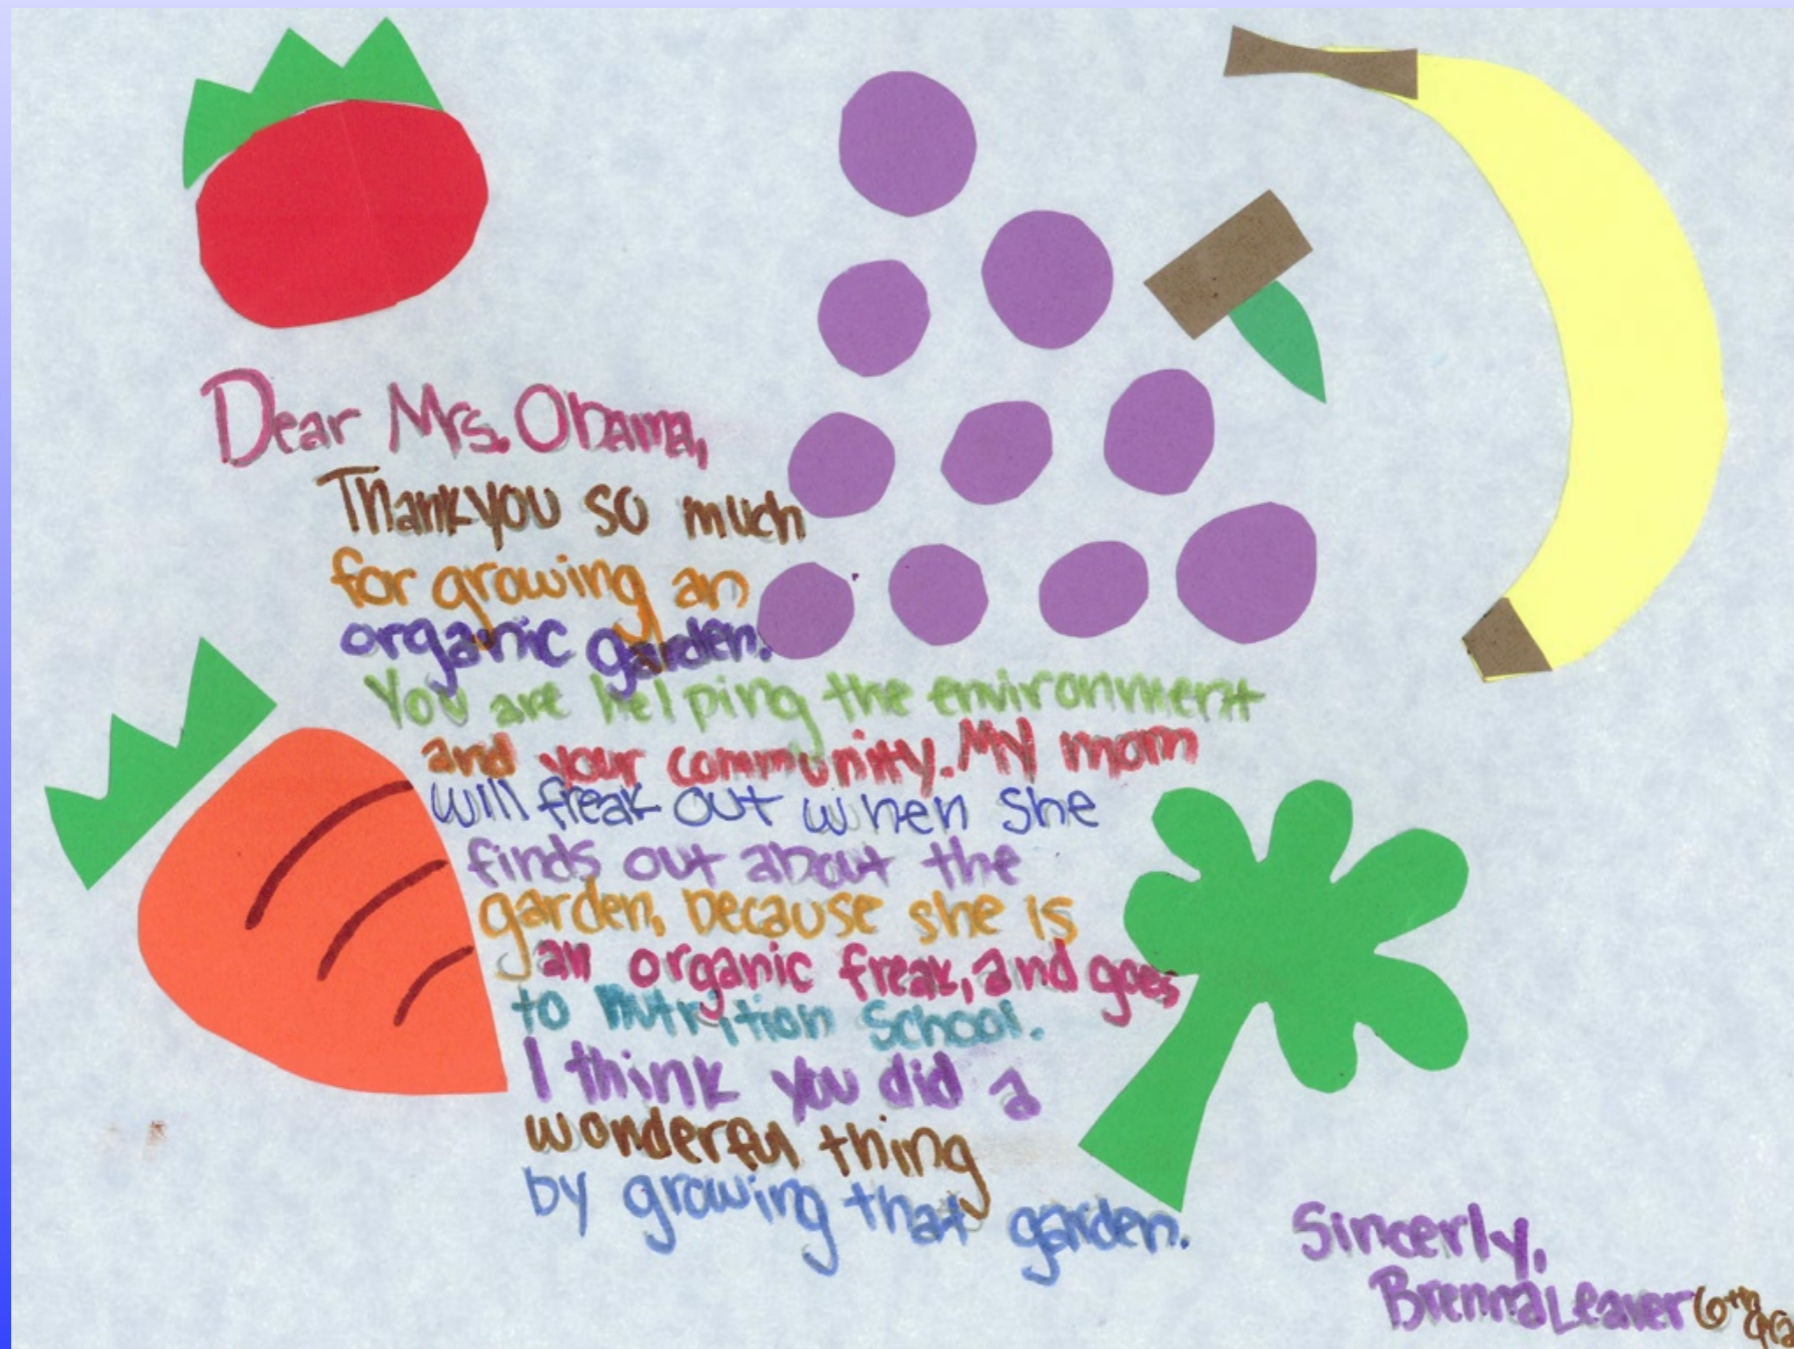 Dear Mrs. Obama,
Thank you so much
for growing an
organic garden.
You are helping the environment
and your community. My mom
will freak out when she
finds out about the
garden, because she is
an organic freak, and goes
to nutrition School.
I think you did a
wonderful thing
by growing that garden.
Sincerly,
Brenna Leaver 6th